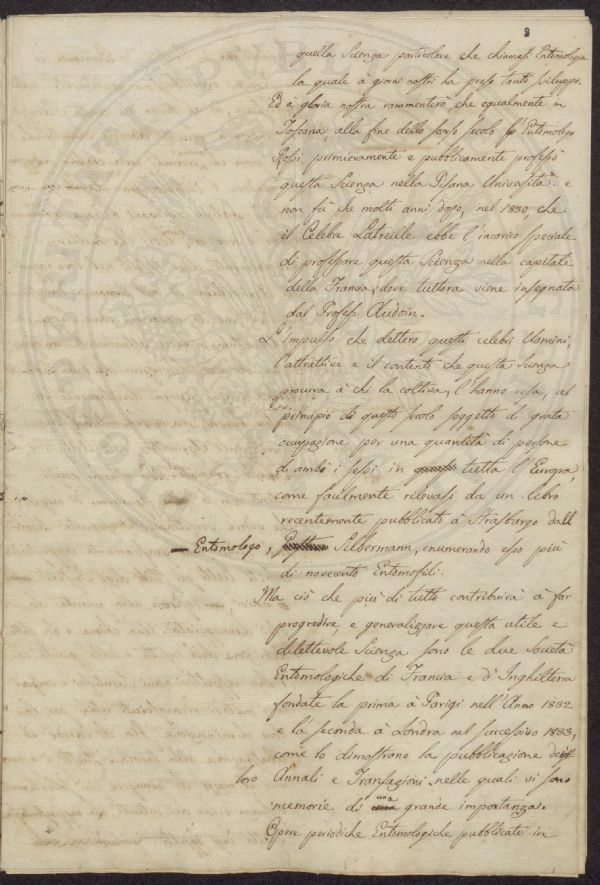 2
quella Scienza particolare che chiamasi Entomologia
la quale à giorni nostri ha preso tanto sviluppo.
Ed à gloria nostra rammenterò, che egualmente in
Toscana, alla fine dello scorso secolo l'Entomologo
Rossi primieramente e pubblicamente professò
questa Scienza nella Pisana Università. e
non fù che molti anni dopo, nel 1830, che
il Celebre Latreille ebbe l'incarico speciale
di professare questa Scienza nella capitale
della Francia, dove tuttora viene insegnata
dal Profess: Audoin.
L'impulso che dettero questi celebri Uomini,
l'attrattive e il contento che questa Scienza
procura à chi la coltiva, l'hanno resa, al
principio di questo secolo soggetto di grata
occupazione per una quantità di persone
di ambi i sessi in tutta l'Europa,
come facilmente rilevasi da un libro
recentemente pubblicato à Strasburgo dall
Entomologo, Silbermann, enumerando esso più
di novecento Entomofili.
Ma ciò che più di tutto contribuirà à far
progredire, e generalizzare questa utile e
dilettevole Scienza sono le due Società
Entomologiche di Francia e d'Inghilterra
fondate la prima à Parigi nell'Anno 1832
e la seconda à Londra nel successivo 1833,
come lo dimostrano la pubblicazione dei
loro Annali e Transazioni, nelle quali vi sono
memorie di una grande importanza.
Opere periodiche Entomologiche pubblicate in